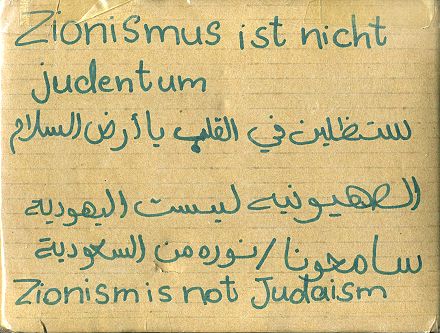 Zionismus ist nicht
judentum
ستظلين في القلب يا أرض السلام
الصهيونيه ليست اليهودية
سامحونا / نوره من السعودية
Zionism is not Judaism